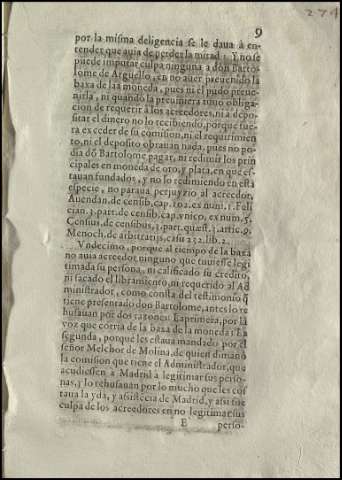 9
274
por la misma deligencia se le daua à en-
tender que auia de perder la mitad: Y no se
puede imputar culpa ninguna a don Barto
lome de Arguello, en no auer preuenido la
baxa de laa moneda, pues ni el pudo preue-
nirla, ni quando la preuiniera tuuo obliga-
cion de requerir à los acreedores, ni a depo-
sitar el dinero no lo recibiendo, porque fue-
ra exceder de su comision, ni el requirimien
to, ni el deposito obrauan nada, pues no po-
dia dõ Bartolome pagar, ni redimir los prin
cipales en moneda de oro, y plata, en que es-
tauan fundados, y no lo redimiendo en esta
especie, no paraua perjuyzio al acreedor,
Auendañ. de censib. cap. 102. ex num. 1. Feli
cian. 3. part. de censib. cap. vnico, ex num. 5.
Census, de censibus, 3. part. quæst. 3. artic. 9.
Menoch. de arbitrarijs, casu 252. lib. 2.
Vndecimo, porque al tiempo de la baxa
no auia acreedor ninguno que tuuiesse legi
timada su persona, ni calificado su credito,
ni sacado el libramiento, ni requerido al Ad
ministrador, como consta del testimonio q̃
tiene presentado don Bartolome, antes lo re
husauan por dos razones: La primera, por la
voz que corria de la baxa de la moneda: La
segunda, porque les estaua mandado por el
señor Melchor de Molina, de quien dimanò
la comision que tiene el Administrador, que
acudiessen à Madrid à legitimar sus perso-
nas, y lo rehusauan por lo mucho que les cos
taua la yda, y asistécia de Madrid, y assi fue
culpa de los acreedores en no legitimar sus
E perso-